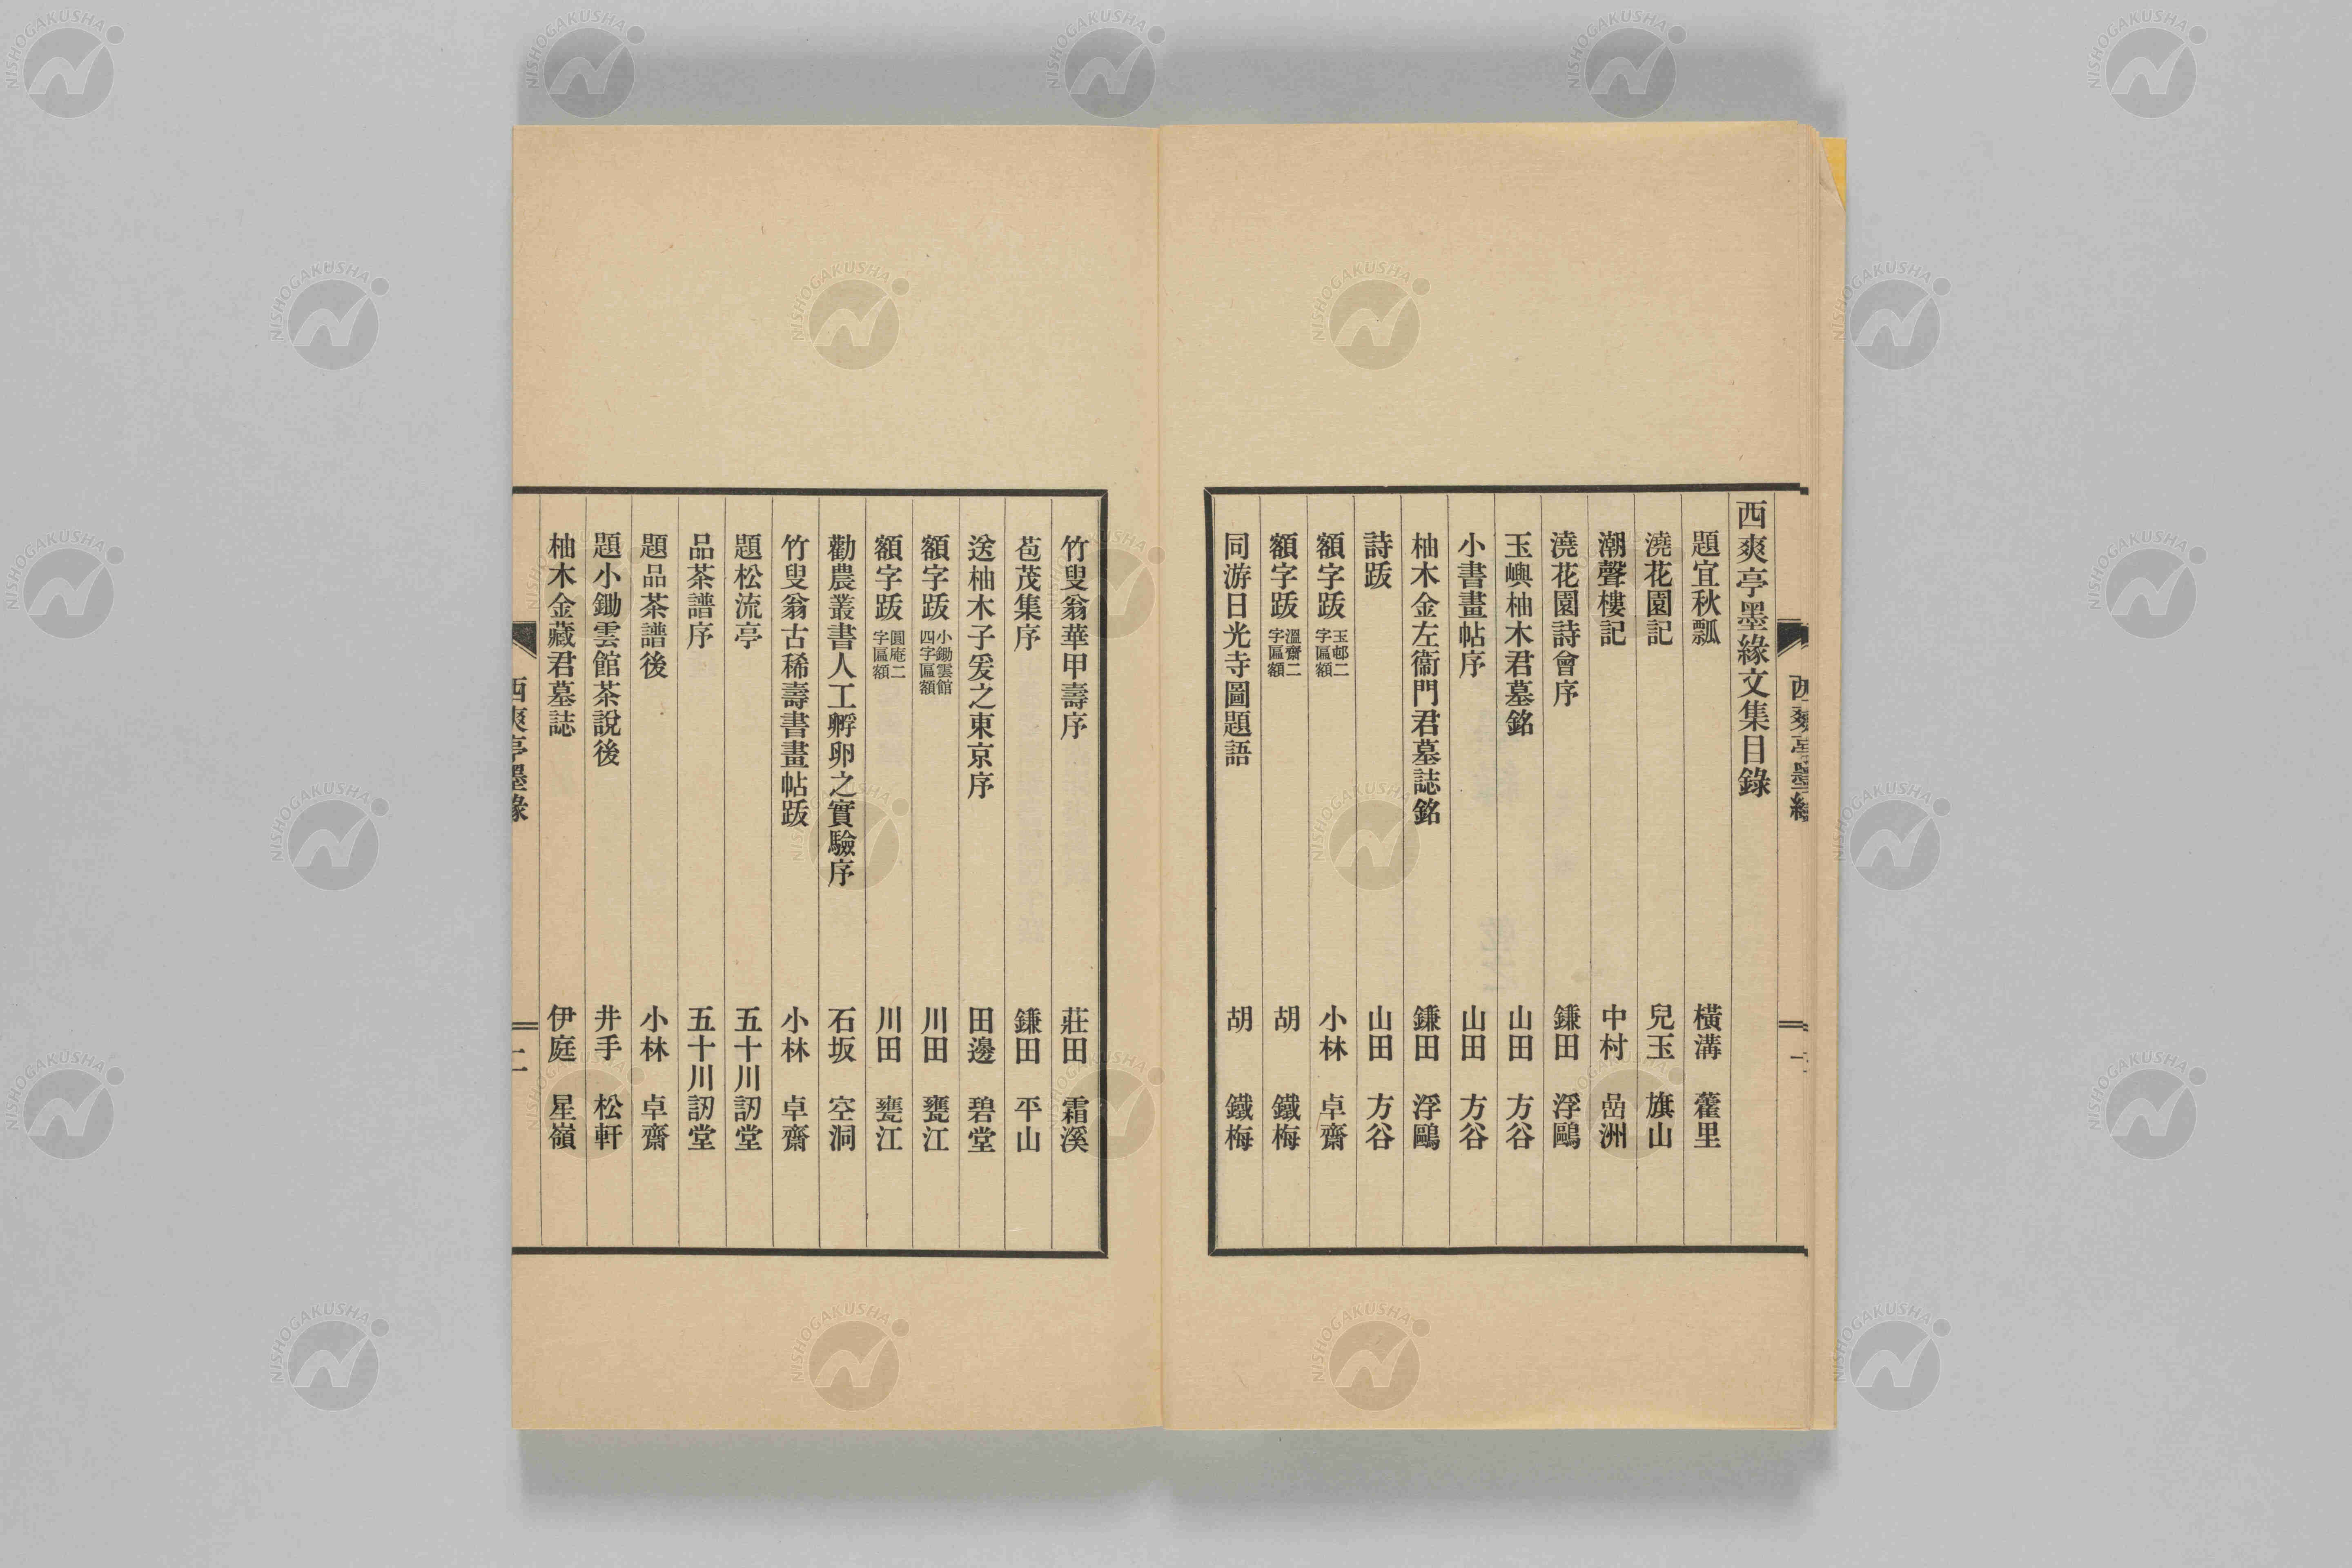 西爽亭墨緣
西爽亭墨緣文集目錄
題宜秋瓢　橫溝　藿里
澆花園記　兒玉　旗山
潮聲樓記　中村　嵒洲
澆花園詩會序　鎌田　浮鷗
玉嶼柚木君墓銘　山田　方谷
小書畫帖序　山田　方谷
柚木金左衞門君墓誌銘　鎌田　浮鷗
詩跋　山田　方谷
額字跋 玉邨二字區額　小林　卓齋
額字跋 溫齋二字區額　胡　鐵梅
同游日光寺圖題語　胡　鐵梅
竹叟翁華甲壽序　莊田　霜溪
苞茂集序　鎌田　平山
送柚木子爰之東京序　田邊　碧堂
額字跋 小鋤雲館四字區額　川田　甕江
額字跋 圓庵二字區額　川田　甕江
勸農叢書人工孵卵之實驗序　石坂　空洞
竹叟翁古稀壽書畫帖跋　小林　卓齋
題松流亭　五十川訒堂
品茶譜序　五十川訒堂
題品茶譜後　小林　卓齋
題小鋤雲館茶說後　井手　松軒
柚木金藏君墓誌　伊庭　星嶺
西爽亭墨緣
二
NISHOGAKUSHA